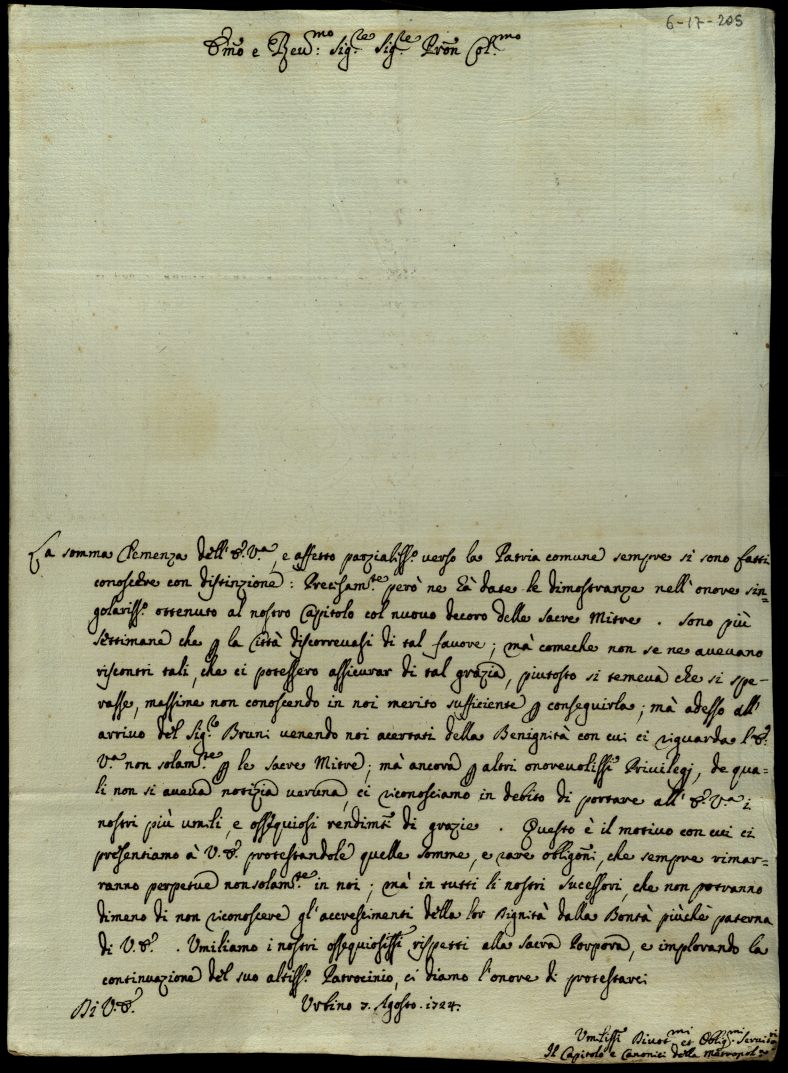 6-17-205
Em̃o e Reu:mo Sig.re Sig.re Pron̄ Col.mo
La somma Clemenza dell'E. V.a, e affetto parzialiss.o verso la Patria comune sempre si sono fatti
conoscere con distinzione: Precisam.te però ne hà date le dimostranze nell'onore sin=
golariss.o ottenuto al nostro Capitolo col nuovo decoro delle Sacre Mitre. Sono più
settimane che ꝑ la Città discorrevasi di tal favore; mà comeche non se ne avevano
riscontri tali, che ci potessero assicurar di tal grazia, piutosto si temeva che si spe-
rasse, massime non conoscendo in noi merito sufficiente ꝑ conseguirla; mà adesso all'
arrivo del Sig.re Bruni venendo noi acertati della Benignità con cui ci riguarda l'E.
V.a non solam.te ꝑ le Sacre Mitre; mà ancora ꝑ altri onorevolissi Privilegj, de qua-
li non si aveva notizia veruna, ci riconosciamo in debito di portare all'E. V.a i
nostri più umili, e ossequiosi rendimti di grazie. Questo è il motivo con cui ci
presentiamo à V. E. protestandole quelle somme, e rare obligoñi, che sempre rimar=
ranno perpetue non solam.te in noi; mà in tutti li nostri Sucessori, che non potranno
dimeno di non riconoscere gl'accrescimenti della lor Dignità dalla Bontà piùchè paterna
di V. E. . Umiliamo i nostri ossequiosissi rispetti alla Sacra Porpora, e implorando la
continuazione del suo altiss.o Patrocinio, ci diamo l'onore di protestarci
Di V. E. Urbino 7. Agosto. 1724.
Umilissi Divot.mi et Oblig.mi Servitori
Il Capitolo e Canonici della Metropol.na